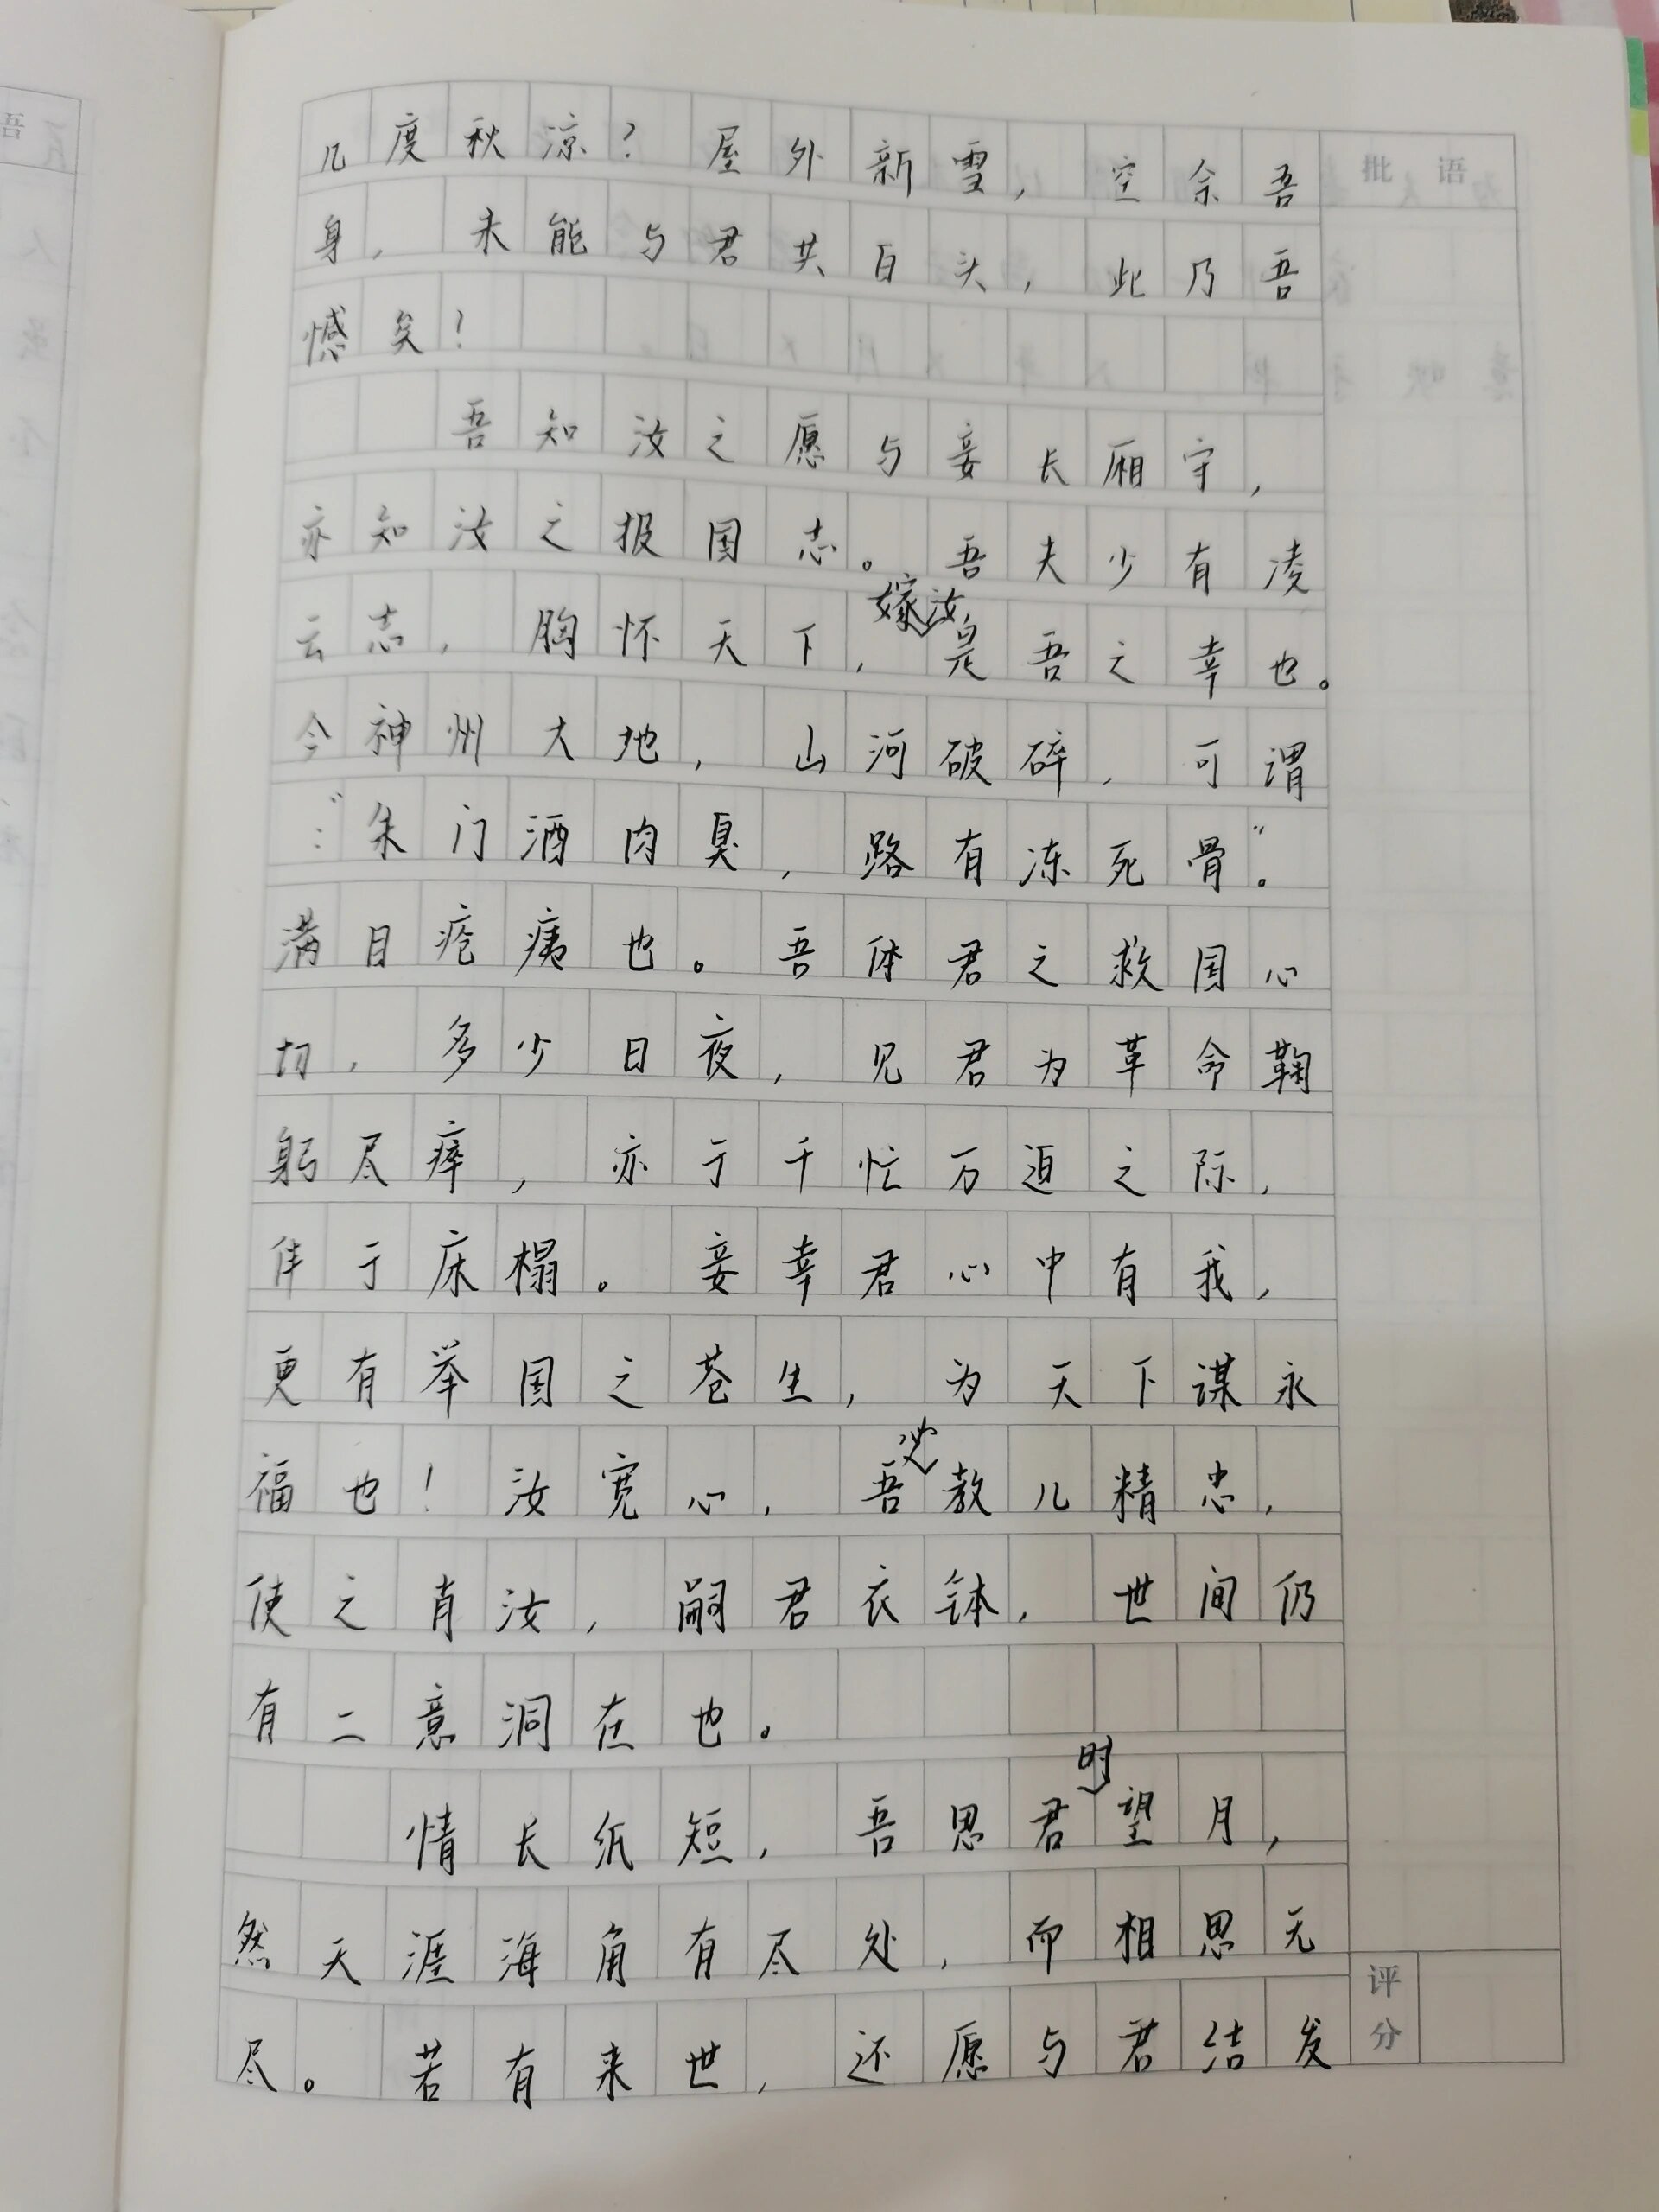 几度秋凉？屋外新雪，空余吾
身，未能与君共白头，此乃吾
憾矣！
吾知汝之愿与妾长厢守，
亦知汝之报国志。吾夫少有凌
云志，胸怀天下，嫁汝是吾之幸也。
今神州大地，山河破碎，可谓
：“朱门酒肉臭，路有冻死骨”。
满目疮痍也。吾体君之救国心
切，多少日夜，见君为革命鞠
躬尽瘁，亦于千忙万迫之际，
伴于床榻。妾幸君心中有我，
更有举国之苍生，为天下谋永
福也！汝宽心，吾必教儿精忠，
使之肖汝，嗣君衣钵，世间仍
有二意洞在也。
情长纸短，吾思君时望月，
然天涯海角有尽处，而相思无
尽。若有来世，还愿与君结发
批语
评分